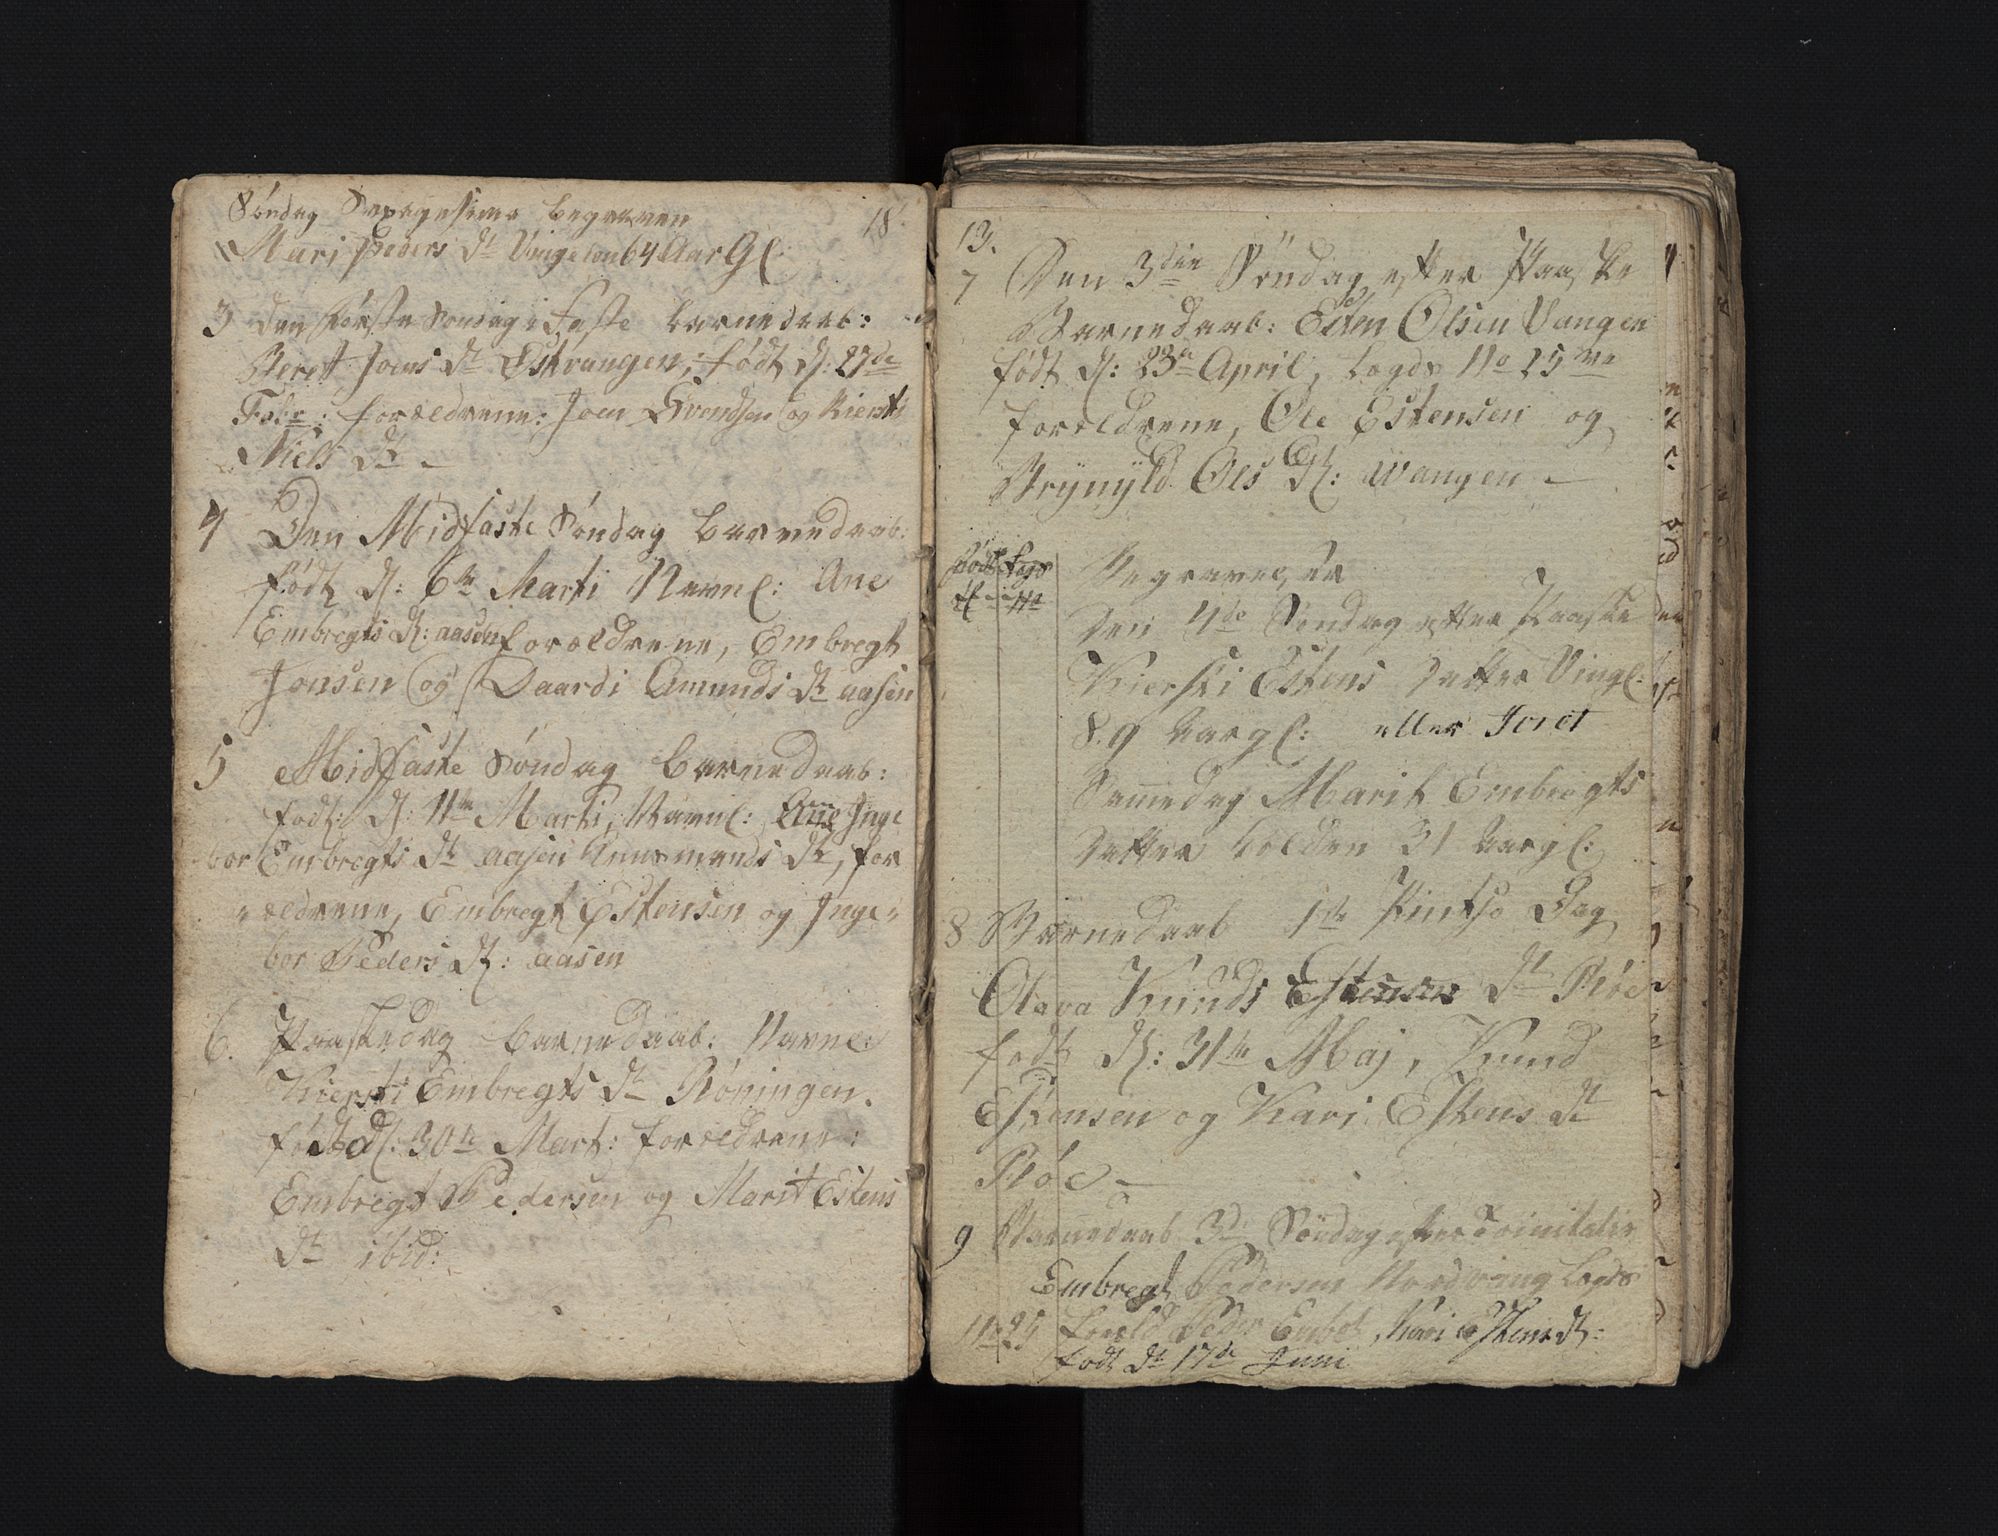 Søndag Sexagesima begraven 18
Mari Peders Dt Vingelen 64 Aar Gl.
3 den første Sondag i Faste barnedaab:
Beret Joens Dt Estvangen, født d: 27de
Febr: foreldrene: Joen Svendsen og Kiersti
Niels Dt –
4 Den Midfaste Søndag barnedaab:
født d: 6te Marti Navnl: Ane
Embregts Dt: aasen foreldrene, Embregt
Jonsen og Daardi Amunds Dt aasen
5 Midfaste Søndag barnedaab:
født: d: 11te Marti, Navnl: Ane Inge
bor Embregts Dt aasen Dt, for
eldrene, Embregt Estensen og Inge-
bor Peders Dt: aasen
6. Paaskedag barnedaab: Navnl:
Kiersti Embregts Dt Røningen.
født d. 30te Mart: foreldrene:
Embregt Pedersen og Marit Estens
Dt ibid:
13.
7 Den 3die Søndag efter Paaske
Barnedaab: Esten Olsen Vangen
født d: 23de April, Lægds No 25
foreldrene, Ole Estensen og
Brynyld Ols Dt: Wangen –
født Lægds
d No
Begravelser
Den 4de Søndag efter Paaske
Kiersti Estens Datter Vingl:
8.9 Aar gl: eller Joret
Samedag Marit Embregts
Datter Holden 31 Aar gl:
8 Barnedaab 1te Pintse Dag
Olava Knuds Estensen Dt Røe
født d: 31te Maj, Knud
Estensen og Kari Estens Dt
Røe –
9 Barnedaab 3de Søndag efter Trinitatis
Embregt Pedersen Nordvang Lægds
No 25 foreld Peder Embt Kari Estens Dt:
født d 17de Juni